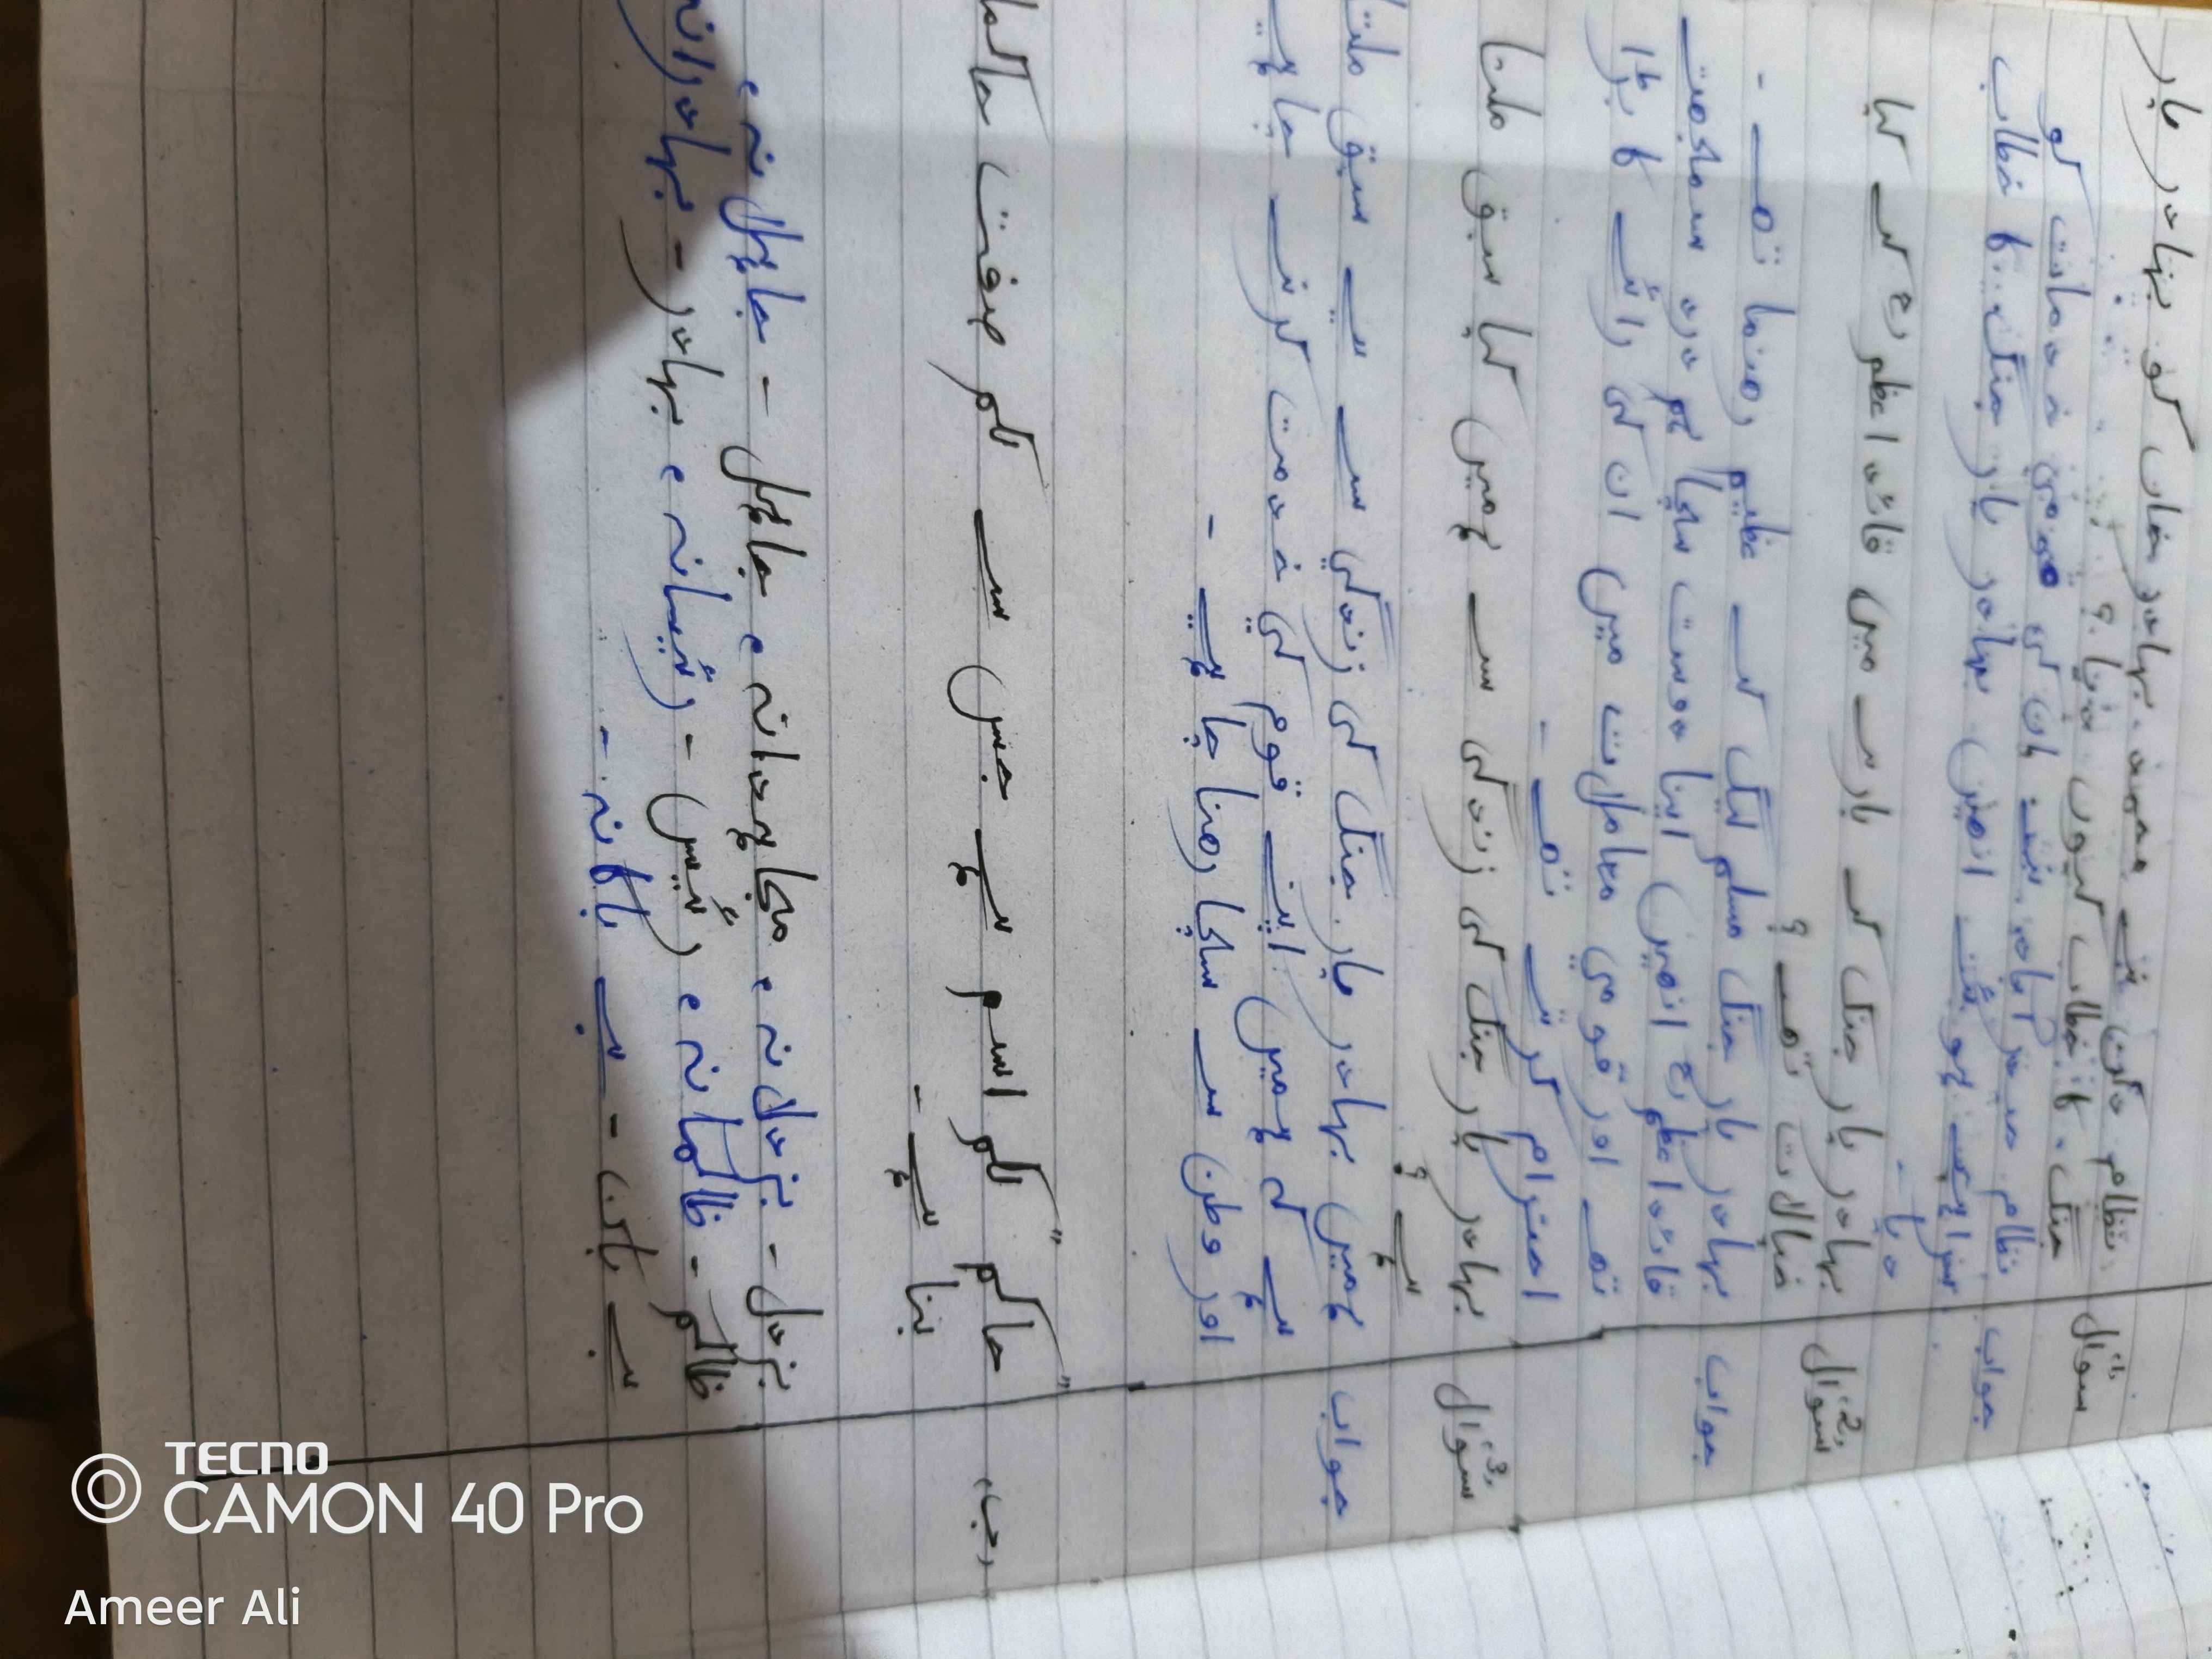 سوال 1 نظام دکن نے محمد بہادر خاں کو بہادر یار
جنگ کا خطاب کیوں دیا ؟
جواب نظام حیدرآباد نے ان کی قومی خدمات کو
سراہتے ہوئے انھیں بہادر یار جنگ کا خطاب
دیا -
سُوال 2 بہادر یار جنگ کے بارے میں قائد اعظم رح کے کیا
خیالات تھے ؟
جواب بہادر یار جنگ مسلم لیگ کے عظیم رھنما تھے -
قائد اعظم رح انھیں اپنا دوست سچا ہم درد سمجھتے
تھے اور قومي معاملات میں ان کی رائے کا بڑا
احترام کرتے تھے -
سُوال 3 بہادر یار جنگ کی زندگی سے ہمیں کیا سبق ملتا
ہے ؟
جواب ہمیں بہادر یار جنگ کی زندگي سے یے سبق ملتا
ہے کہ ہمیں اپنے قوم کي خدمت کرنے چاہیے
اور وطن سے سچا رھنا چا ہیے -
(ب) "حاکم" لکم اسم ہے جس سے لکم صفت حاکما
بنا ہے -
بزدل - بزدلانہ ، مجاہدانہ ، جاہل - جاہلانہ ،
ظالم - ظالمانہ ، رئیس - رئیسانہ ، بہادر - بہادرانہ
بے باک - بے باکانہ -
TECNO
CAMON 40 Pro
Ameer Ali